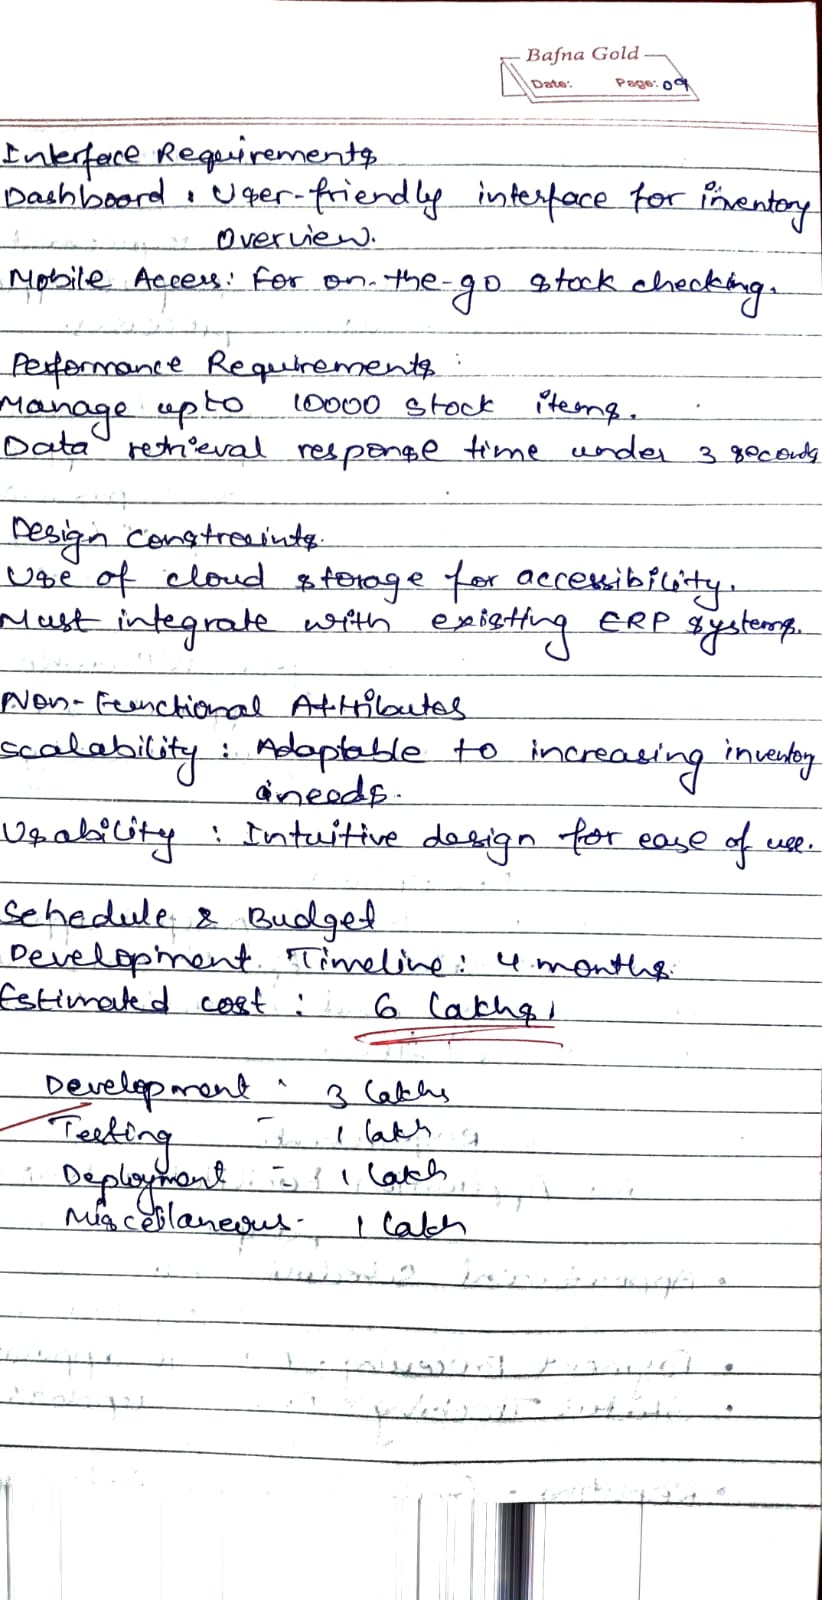 Bafna Gold
Date: Page: 09
Interface Requirements
Dashboard : User-friendly interface for inventory
overview.
Mobile Access: For on-the-go stock checking.
Performance Requirements :
Manage upto 10000 stock items.
Data retrieval response time under 3 seconds
Design constraints.
Use of cloud storage for accessibility.
Must integrate with existing ERP systems.
Non-Functional Attributes
Scalability : Adaptable to increasing inventory
needs.
Usability : Intuitive design for ease of use.
Schedule & Budget
Development Timeline: 4 months.
Estimated cost : 6 lakhs,
Development : 3 lakhs
Testing - 1 lakh
Deployment - 1 lakh
Miscellaneous - 1 lakh